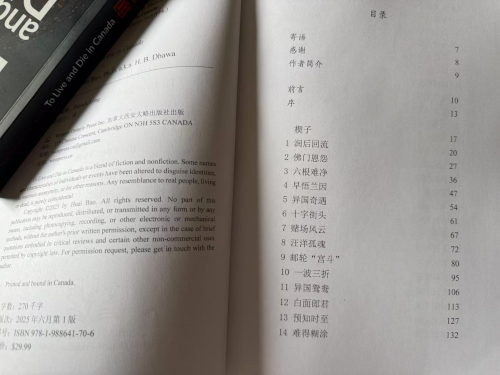 To Live and Die in Canada
H. B. Dhawa
加拿大西安大略出版社出版
Cambridge ON N3H 5S3 CANADA
and Die in Canada is a blend of fiction and nonfiction. Some names
of individuals or events have been altered to disguise identities,
or other reasons. Any resemblance to real people, living
or dead, is purely coincidental.
Copyright ©2025 by Huai Bao. All rights reserved. No part of this
may be reproduced, distributed, or transmitted in any form or by any
means, including photocopying, recording, or other electronic or mechanical
methods, without the prior written permission, except in the case of brief
quotations embodied in critical reviews and certain other non-commercial uses
permitted by copyright law. For permission request, please get in touch with the
Printed and bound in Canada.
字数：270 千字
版次：2025 年六月第 1 版
书号：ISBN 978-1-988641-70-6
定价：$29.99
目录
寄语 7
感谢 8
作者简介 9
前言 10
序 13
楔子 17
1 洄后回流 20
2 佛门恩怨 27
3 六根难净 34
4 早悟兰因 41
5 异国奇遇 47
6 十字街头 54
7 赌场风云 60
8 汪洋孤魂 72
9 邮轮“宫斗” 80
10 一波三折 95
11 异国鸳鸯 106
12 白面郎君 113
13 预知时至 127
14 难得糊涂 132